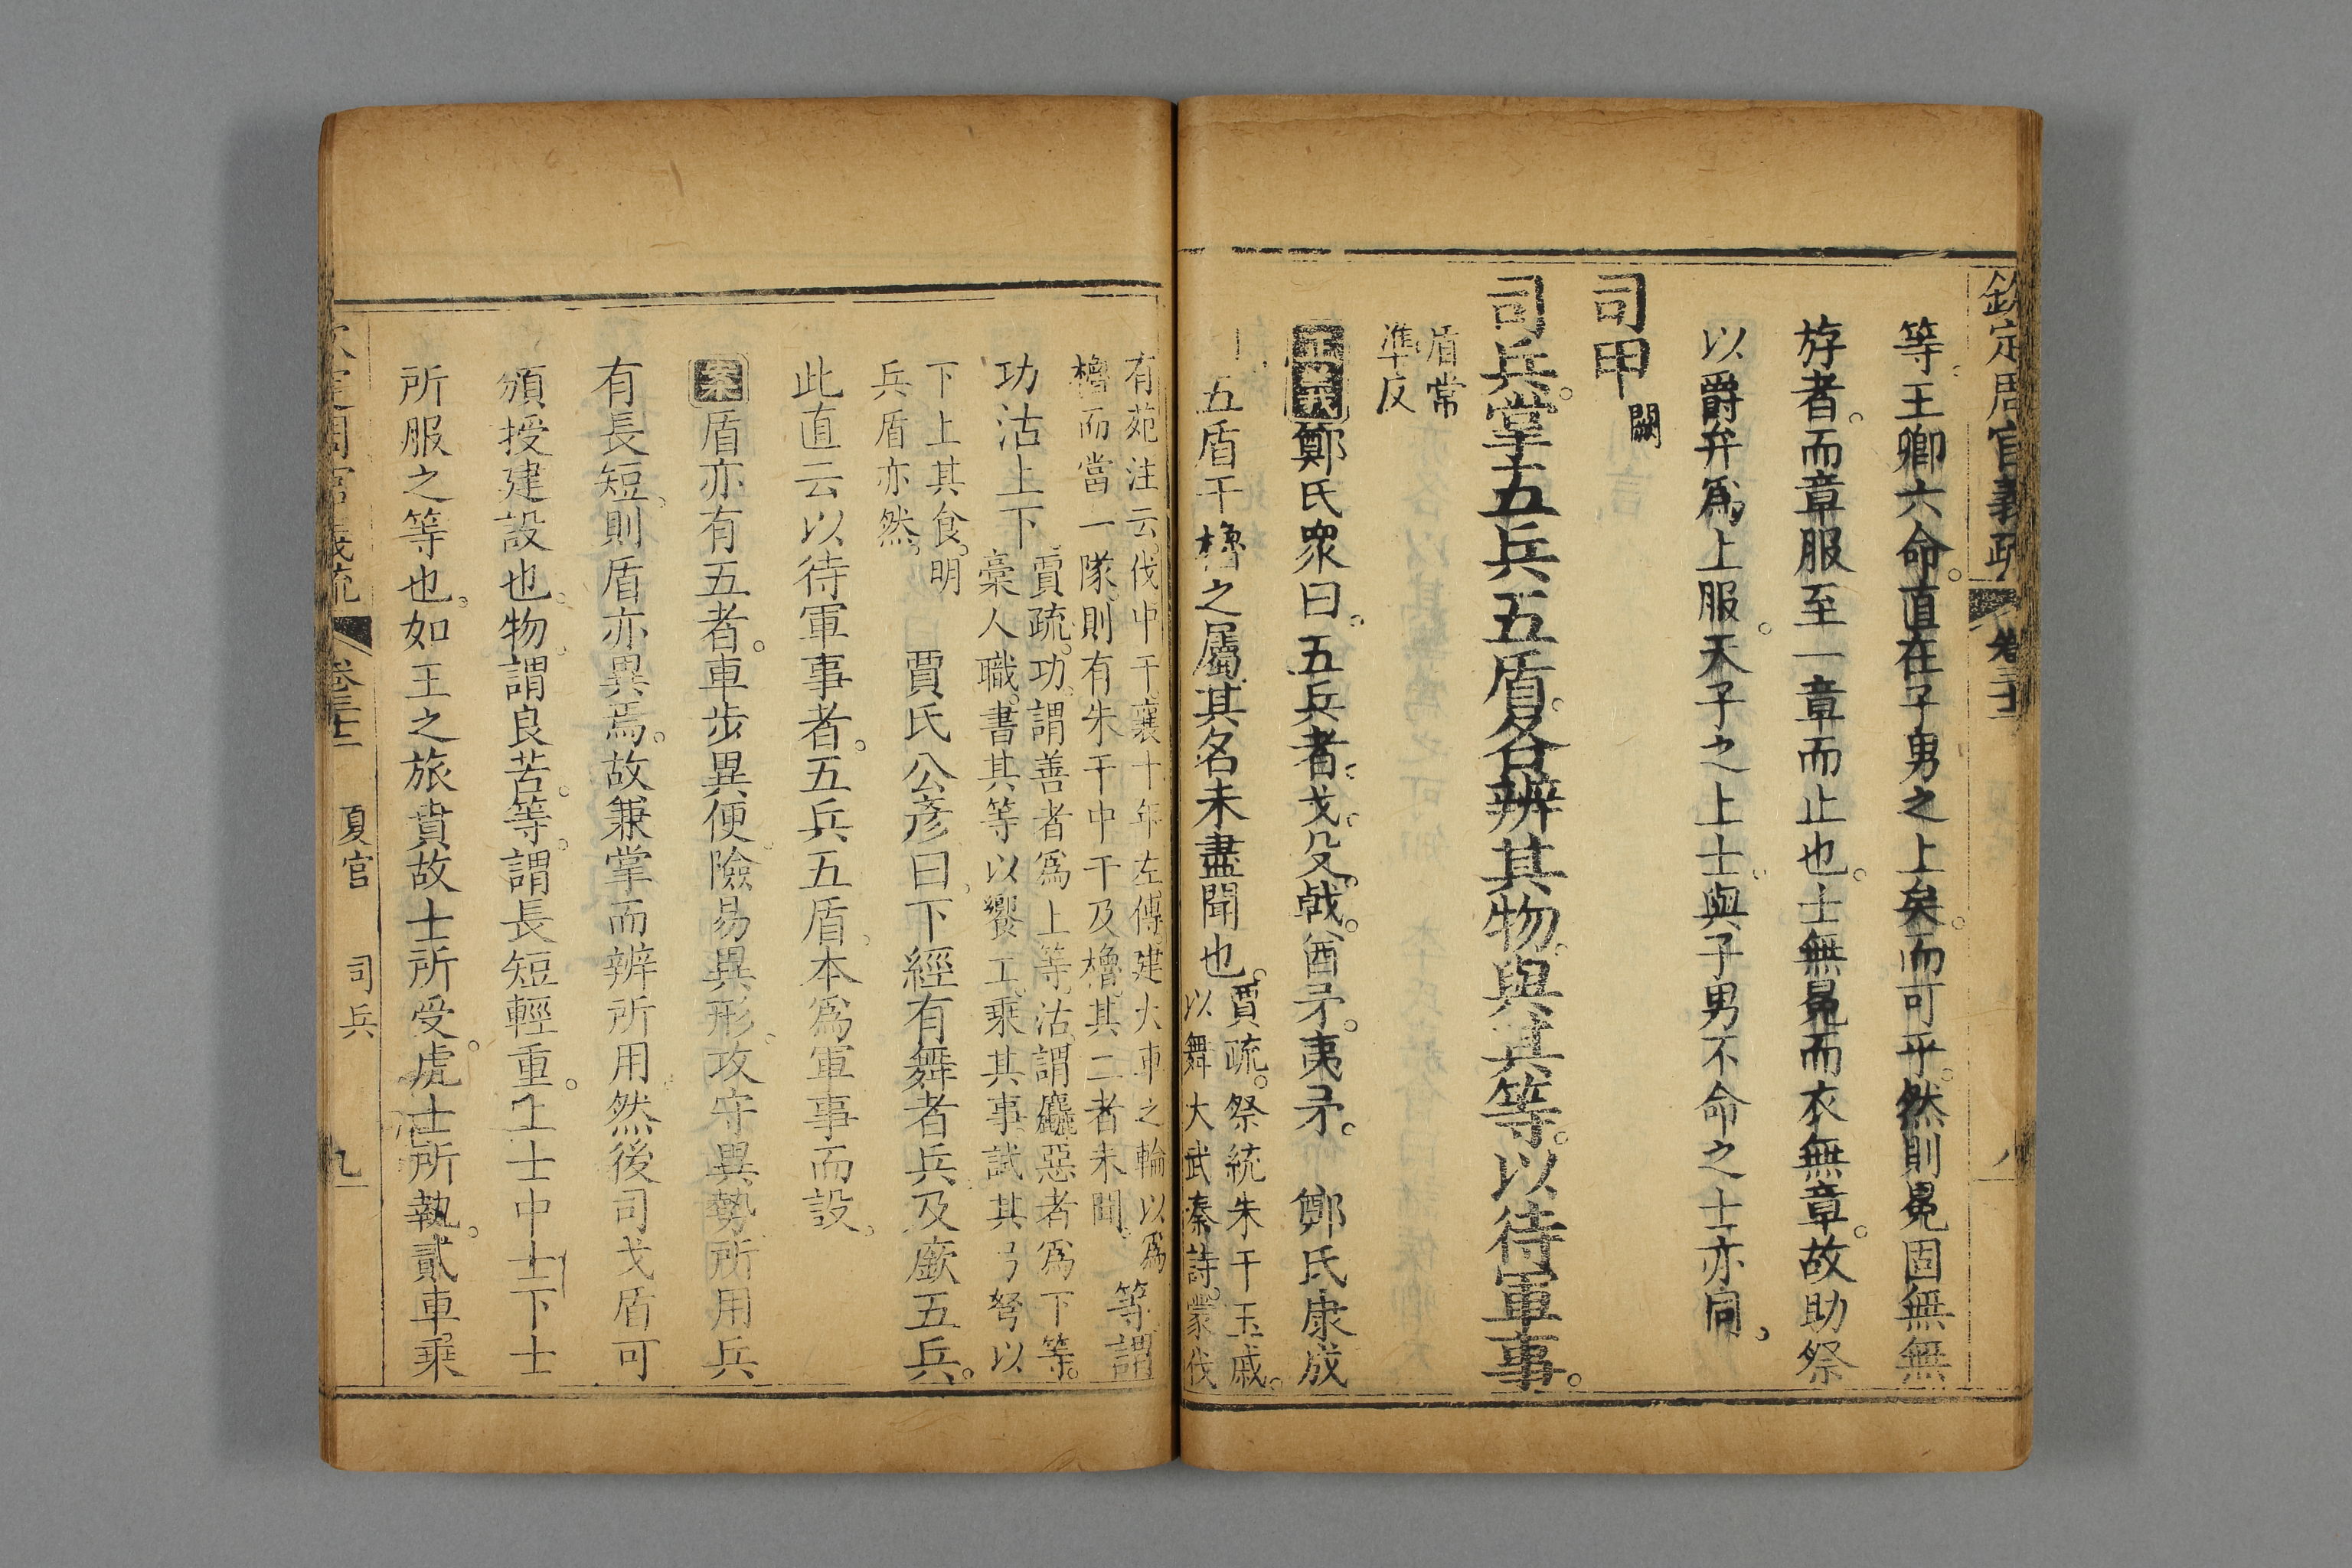 欽定周官義疏 卷三十二 八
等王卿六命直在子男之上矣而可乎然則冕固無無
斿者而章服至一章而止也士無冕而衣無章故助祭
以爵弁爲上服天子之上士與子男不命之士亦同
司甲闕
司兵掌五兵五盾各辨其物與其等以待軍事
盾常
準反
正義鄭氏衆曰五兵者戈殳戟酋矛夷矛 鄭氏康成
曰五盾干櫓之屬其名未盡聞也
賈疏祭統朱干玉戚
以舞大武秦詩蒙伐
有苑注云伐中干襄十年左傳建大車之輪以爲
櫓而當一隊則有朱干中干及櫓其二者未聞
等謂
功沽上下
賈疏功謂善者爲上等沽謂麤惡者爲下等
稾人職書其等以饗工乘其事試其弓弩以
下上其食明
兵盾亦然
賈氏公彥曰下經有舞者兵及廞五兵
此直云以待軍事者五兵五盾本爲軍事而設
案盾亦有五者車步異便險易異形攻守異勢所用兵
有長短則盾亦異焉故兼掌而辨所用然後司戈盾可
頒授建設也物謂良苦等謂長短輕重上士中士下士
所服之等也如王之旅賁故士所受虎士所執貳車乘
欽定周官義疏 卷三十二 夏官 司兵 九